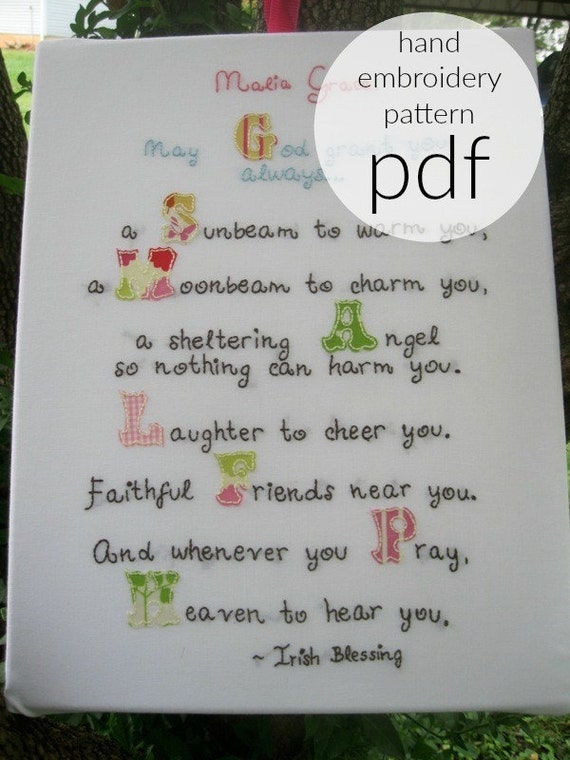 hand
embroidery
pattern
pdf
Malia
May God grant you
always...
a Sunbeam to warm you,
a Moonbeam to charm you,
a sheltering Angel
so nothing can harm you.
Laughter to cheer you.
Faithful Friends near you.
And whenever you Pray,
Heaven to hear you.
~ Irish Blessing